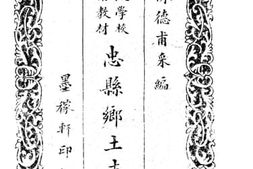 德甫采編
學校
教材
忠縣鄉土
墨稼軒印